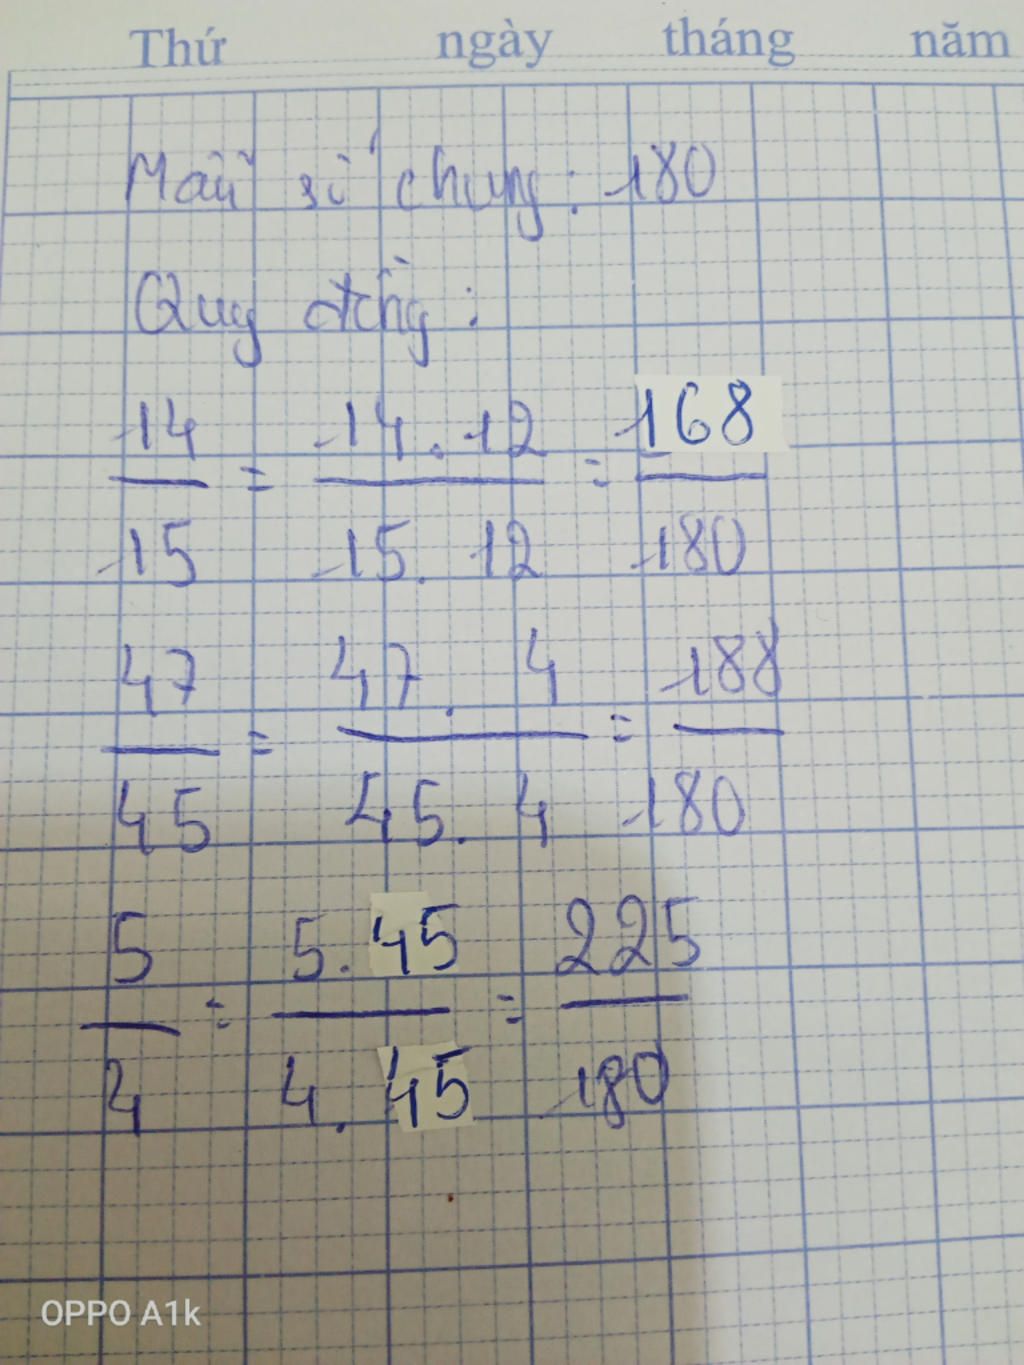 Thứ ngày tháng năm
Mẫu số chung: 180
Quy đồng:
14/15 = 14.12/15.12 = 168/180
47/45 = 47.4/45.4 = 188/180
5/4 = 5.45/4.45 = 225/180
OPPO A1k